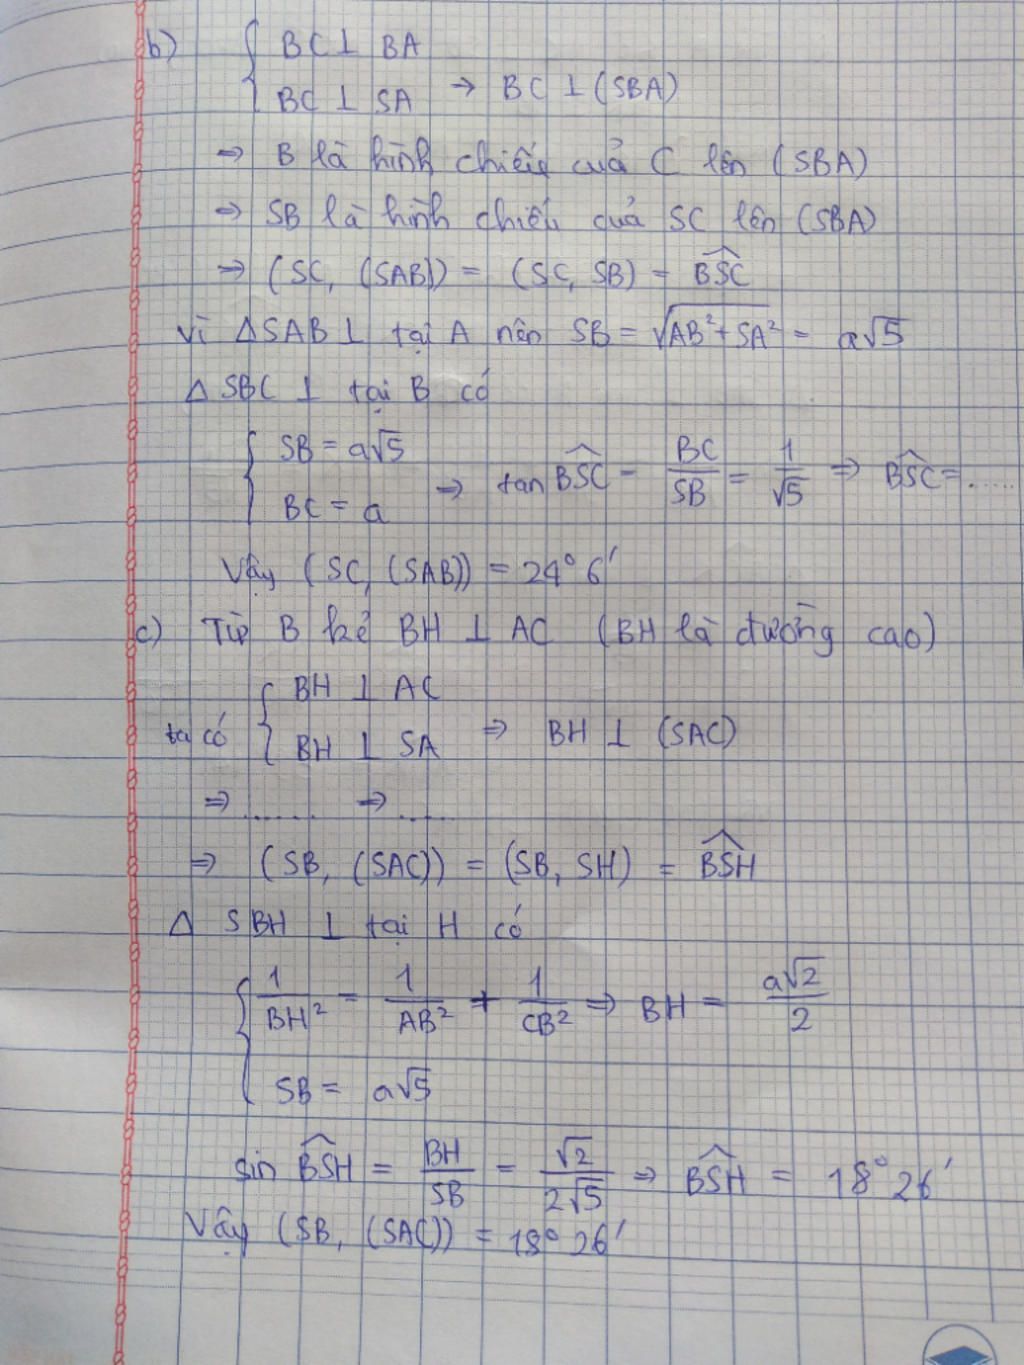 b) { BC ⊥ BA
BC ⊥ SA → BC ⊥ (SBA)
⇒ B là hình chiếu của C lên (SBA)
⇒ SB là hình chiếu của SC lên (SBA)
⇒ (SC, (SAB)) = (SC, SB) = \widehat{BSC}
Vì ΔSAB ⊥ tại A nên SB = √(AB² + SA²) = a√5
Δ SBC ⊥ tại B có
{ SB = a√5
BC = a → tan \widehat{BSC} = BC/SB = 1/√5 ⇒ \widehat{BSC} = ......
Vậy (SC, (SAB)) = 24°6'
c) Từ B kẻ BH ⊥ AC (BH là đường cao)
ta có { BH ⊥ AC
BH ⊥ SA ⇒ BH ⊥ (SAC)
⇒ ...... ⇒ .....
⇒ (SB, (SAC)) = (SB, SH) = \widehat{BSH}
Δ SBH ⊥ tại H có
{ 1/BH² = 1/AB² + 1/CB² ⇒ BH = a√2/2
SB = a√5
sin \widehat{BSH} = BH/SB = √2/2√5 ⇒ \widehat{BSH} = 18°26'
Vậy (SB, (SAC)) = 18°26'